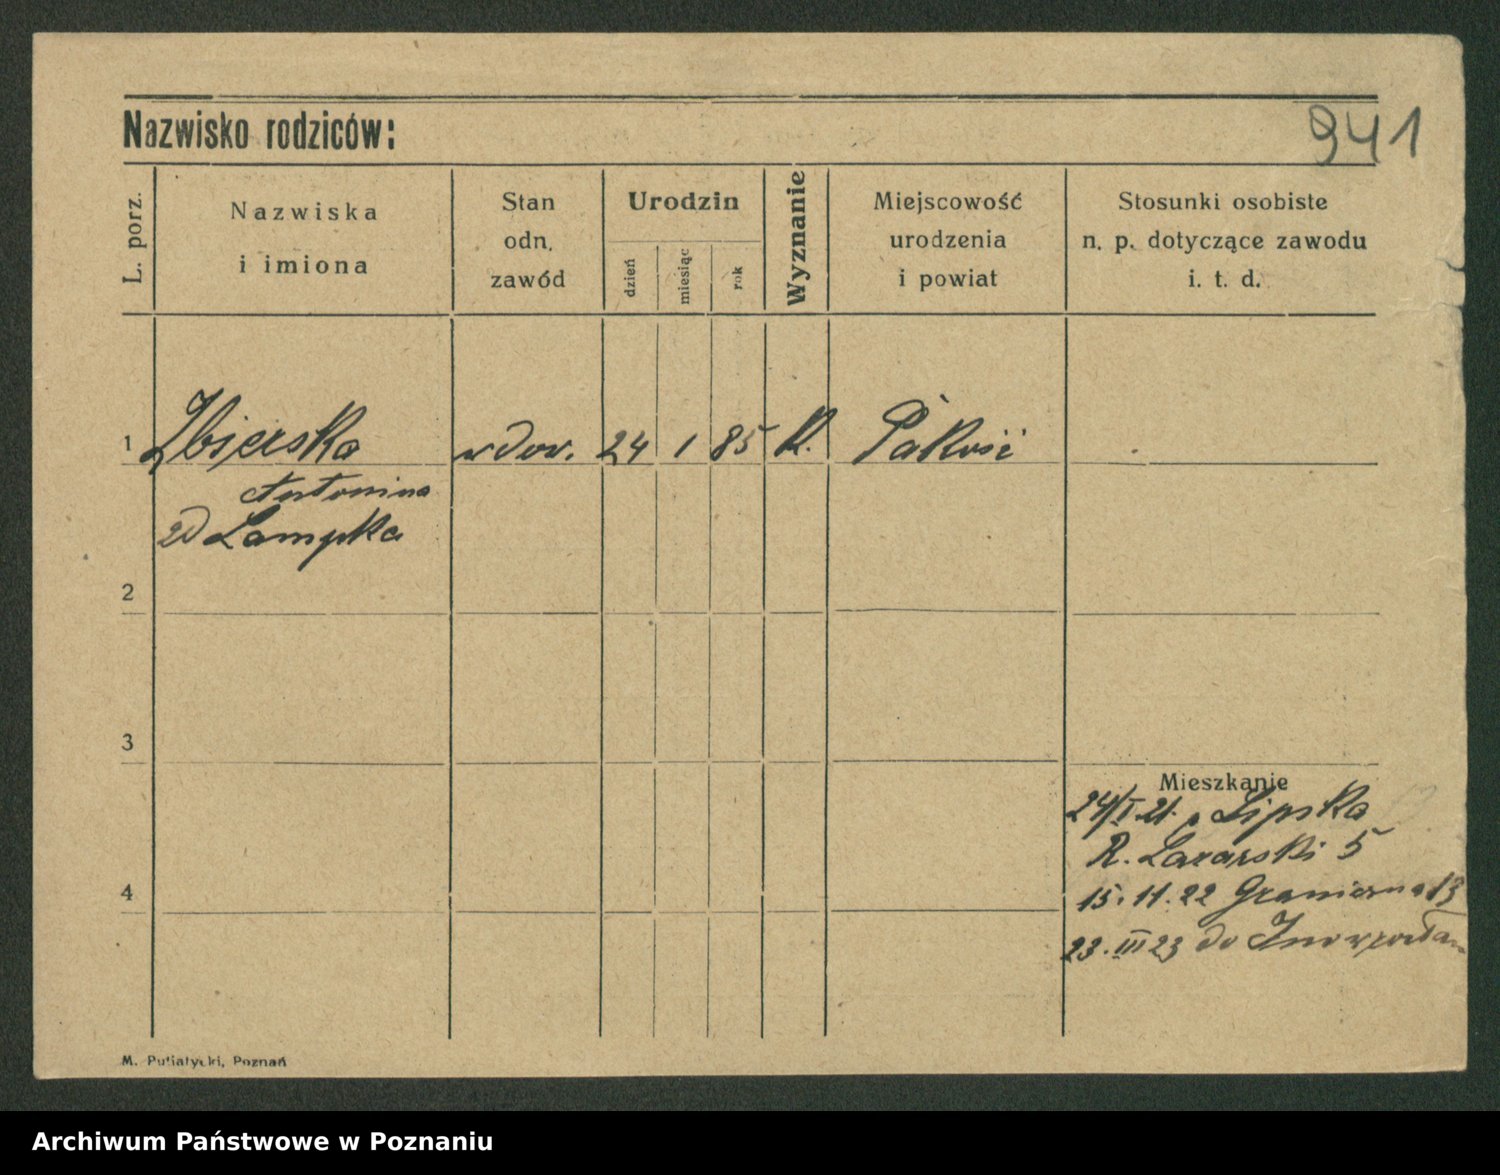 Nazwisko rodziców:
941
L. porz.
Nazwiska
i imiona
Stan
odn.
zawód
Urodzin
dzień
miesiąc
rok
Wyznanie
Miejscowość
urodzenia
i powiat
Stosunki osobiste
n. p. dotyczące zawodu
i. t. d.
1 Zbierska wdow. 24 1 85 K. Pakość
Antonina
zd Lampka
2
3
Mieszkanie
24/I 21. Lipska
R. Lazarski 5
4
15. 11. 22 Graniczna 13
23. III 23 do Inowrocław
M. Putiatycki, Poznań
Archiwum Państwowe w Poznaniu